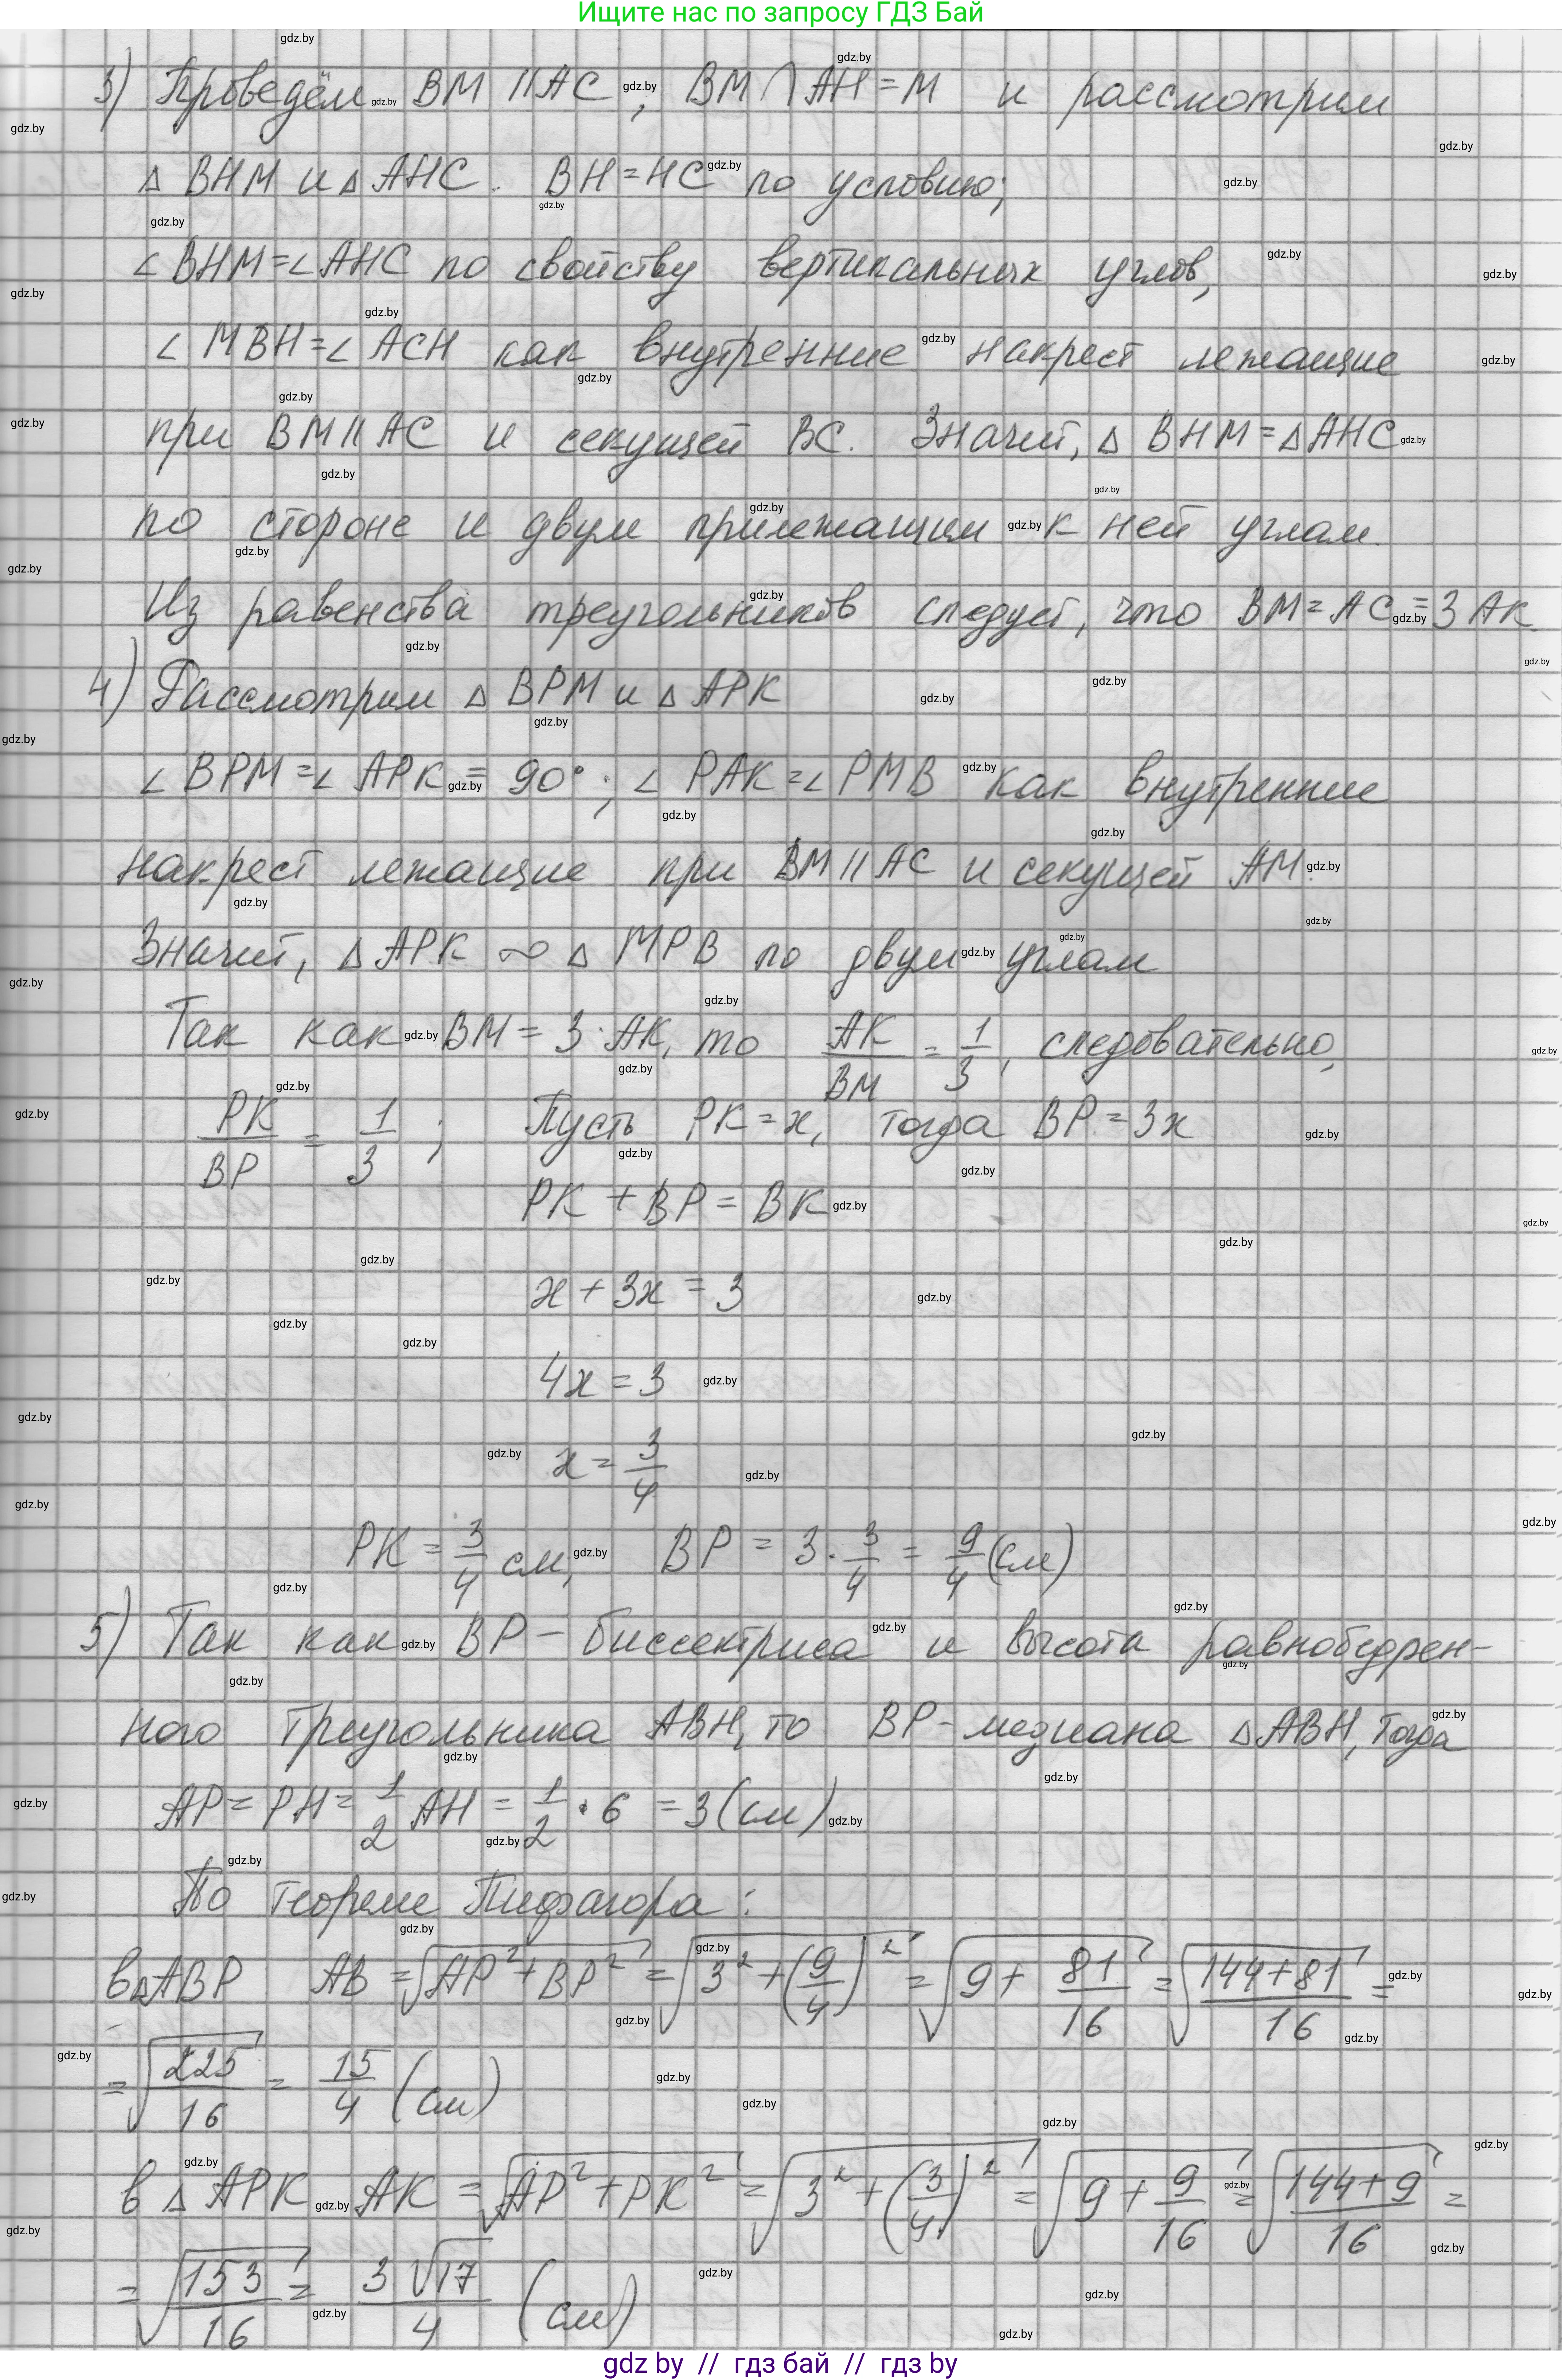 Ищите нас по запросу ГДЗ Бай
3) Проведём BM || AC, BM ∩ AH = M и рассмотрим
△ BHM и △ AHC. BH = HC по условию;
∠ BHM = ∠ AHC по свойству вертикальных углов,
∠ MBH = ∠ ACH как внутренние накрест лежащие
при BM || AC и секущей BC. Значит, △ BHM = △ AHC
по стороне и двум прилежащим к ней углам.
Из равенства треугольников следует, что BM = AC = 3 AK.
4) Рассмотрим △ BPM и △ APK
∠ BPM = ∠ APK = 90°; ∠ PAK = ∠ PMB как внутренние
накрест лежащие при BM || AC и секущей AM.
Значит, △ APK ∾ △ MPB по двум углам
Так как BM = 3 · AK, то AK/BM = 1/3, следовательно,
PK/BP = 1/3; Пусть PK = x, тогда BP = 3x
PK + BP = BK
x + 3x = 3
4x = 3
x = 3/4
PK = 3/4 см, BP = 3 · 3/4 = 9/4 (см)
5) Так как BP – биссектриса и высота равнобедрен-
ного треугольника ABH, то BP – медиана △ ABH, тогда
AP = PH = 1/2 AH = 1/2 · 6 = 3 (см)
По теореме Пифагора:
в △ ABP AB = √(AP² + BP²) = √(3² + (9/4)²) = √(9 + 81/16) = √((144+81)/16) =
= √(225/16) = 15/4 (см)
в △ APK AK = √(AP² + PK²) = √(3² + (3/4)²) = √(9 + 9/16) = √((144+9)/16) =
= √(153/16) = 3√17/4 (см)
gdz by // гдз бай // гдз by